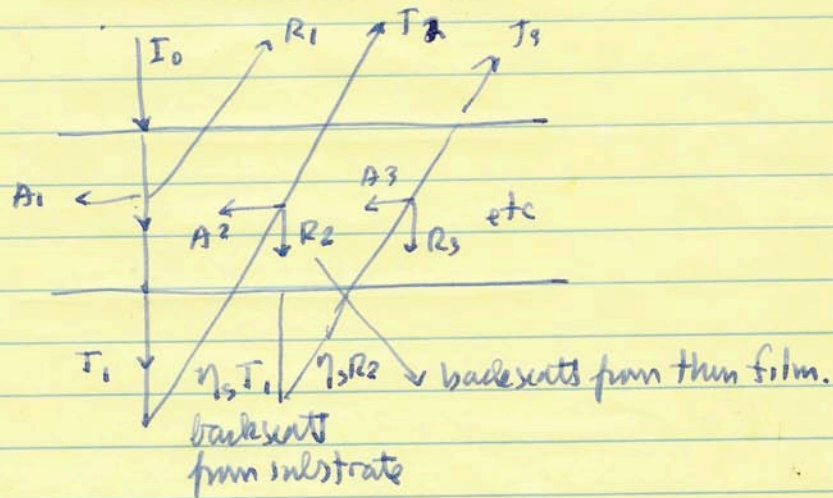 I0 R1 T2 T3
A1 A2 R2 A3 R3 etc
T1 ηs T1 ηs R2 backscatts from thin film.
backscatts
from substrate